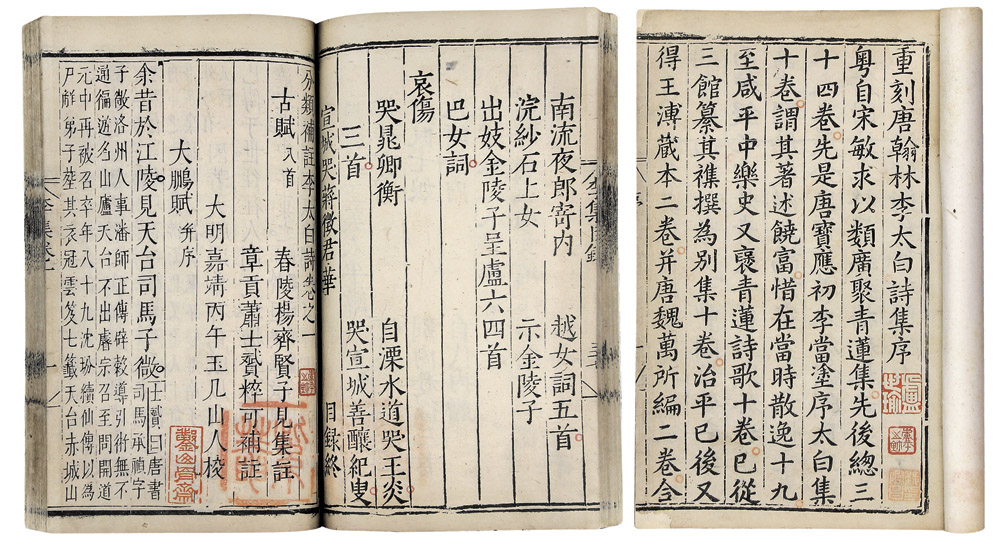 重刻唐翰林李太白詩集序
粵自宋敏求以類廣聚青蓮集先後總三
十四卷先是唐寶應初李當塗序太白集
十卷謂其著述饒富惜在當時散逸十九
至咸平中樂史又裒青蓮詩歌十卷已從
三館纂其襍撰為別集十卷治平已後又
得王溥蔵本二卷并唐魏萬所編二卷合
李集目錄
南流夜郎寄内 越女詞五首
浣紗石上女 示金陵子
出妓金陵子呈盧六四首
巴女詞
哀傷
哭晁卿衡 自溧水道哭王炎
三首 哭宣城善釀紀叟
宣城哭蔣徵君華 目録終
分類補註李太白詩卷之一
古賦八首 舂陵楊齊賢子見集註
章貢蕭士贇粹可補註
大明嘉靖丙午玉几山人校
大鵬賦 并序
余昔於江陵見天台司馬子微 士贇曰唐書
司馬承禎字
子微洛州人事潘師正傳辟穀導引術無不
通徧遊名山廬天台不出睿宗召至問開道
元中再被召卒年八十九沈玢續仙傳以為
尸解弟子葬其衣冠雲笈七籤天台赤城山
李集卷一